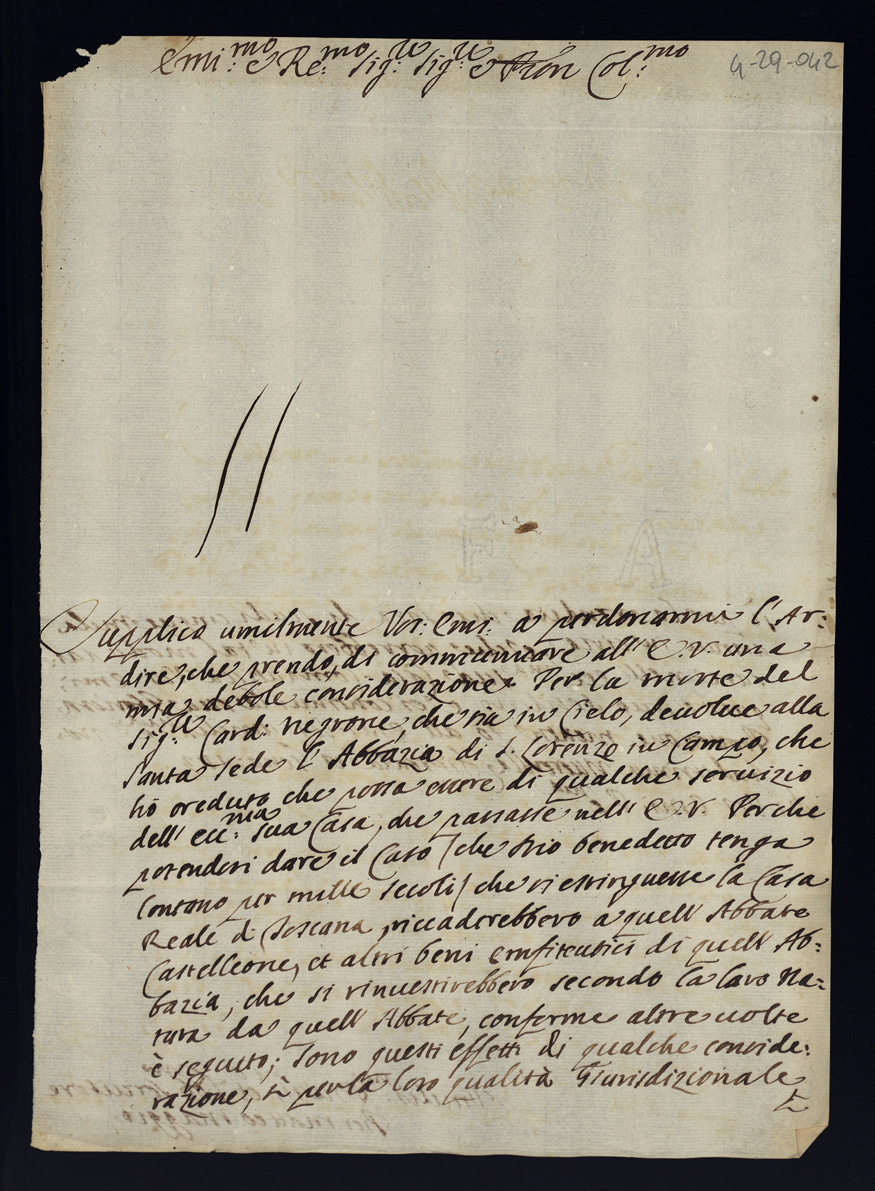 Emi:mo e Re:mo Sig:re Sig:re e Pron Col:mo
4-29-042
Supplico umilmente Vos: Emi: a perdonarmi l'Ar:
dire, che prendo, di communicare all'E.V. una
mia debole considerazione. Per la morte del
Sig:re Card: Negrone, che sia in Cielo, devolue alla
Santa Sede l'Abbazia di S. Lorenzo in Campo, che
hò creduto che possa essere di qualche servizio
dell'ecc:ma sua Casa, che passasse nell'E.V. Perche
potendosi dare il Caso /che Iddio benedetto tenga
lontano per mille secoli/ che si estinguesse la Casa
Reale di Toscana, riccaderebbero a quell'Abbate
Castelleone, et altri beni emfiteutici di quell'Ab:
bazia, che si rinvestirebbero secondo la loro na:
tura da quell'Abbate, conforme altre uolte
è seguito; Sono questi effetti di qualche conside:
razione, Sì per la loro qualità Giurisdizionale
Sì